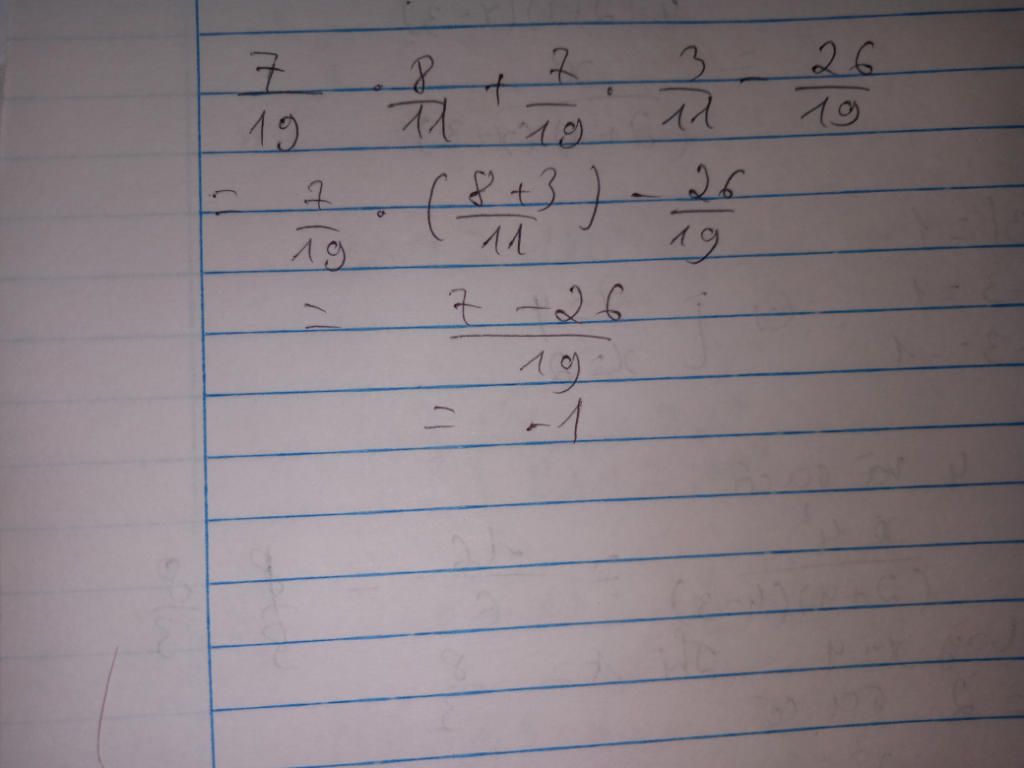 7/19 · 8/11 + 7/19 · 3/11 - 26/19
= 7/19 · (8+3/11) - 26/19
= 7-26/19
= -1